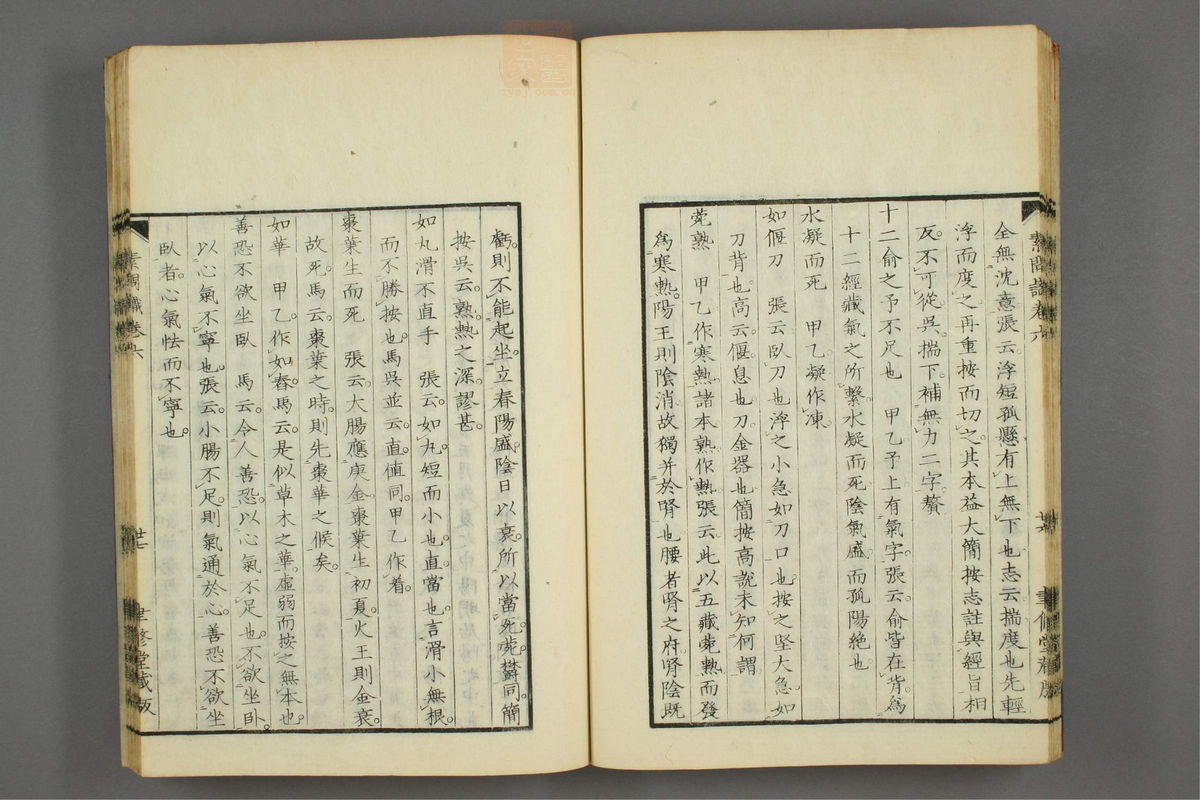 全無沈意張云浮短孤懸有上無下也志云揣度也先輕
浮而度之再重按而切之其本益大簡按志註與經旨相
反不可從吳揣下補無力二字贅
十二俞之予不足也　甲乙予上有氣字張云俞皆在背爲
十二經藏氣之所繫水凝而死陰氣盛而孤陽絶也
水凝而死　甲乙凝作凍
如偃刀　張云臥刀也浮之小急如刀口也按之堅大急如
刀背也高云偃息也刀金器也簡按高說未知何謂
菀熟　甲乙作寒熱諸本熟作熱張云此以五藏菀熱而發
爲寒熱陽王則陰消故獨并於腎也腰者腎之府腎陰既
虧則不能起坐立春陽盛陰日以衰所以當死菀鬱同簡
按吳云熟熱之深謬甚
如丸滑不直手　張云如丸短而小也直當也言滑小無根
而不勝按也馬吳並云直値同甲乙作着
棗葉生而死　張云大腸應庚金棗葉生初夏火王則金衰
故死馬云棗葉之時則先棗華之候矣
如華　甲乙作如春馬云是似草木之華虛弱而按之無本也
善恐不欲坐臥　馬云令人善恐以心氣不足也不欲坐臥
以心氣不寧也張云小腸不足則氣通於心善恐不欲坐
臥者心氣怯而不寧也
素問識卷六
廿七
聿修堂藏版